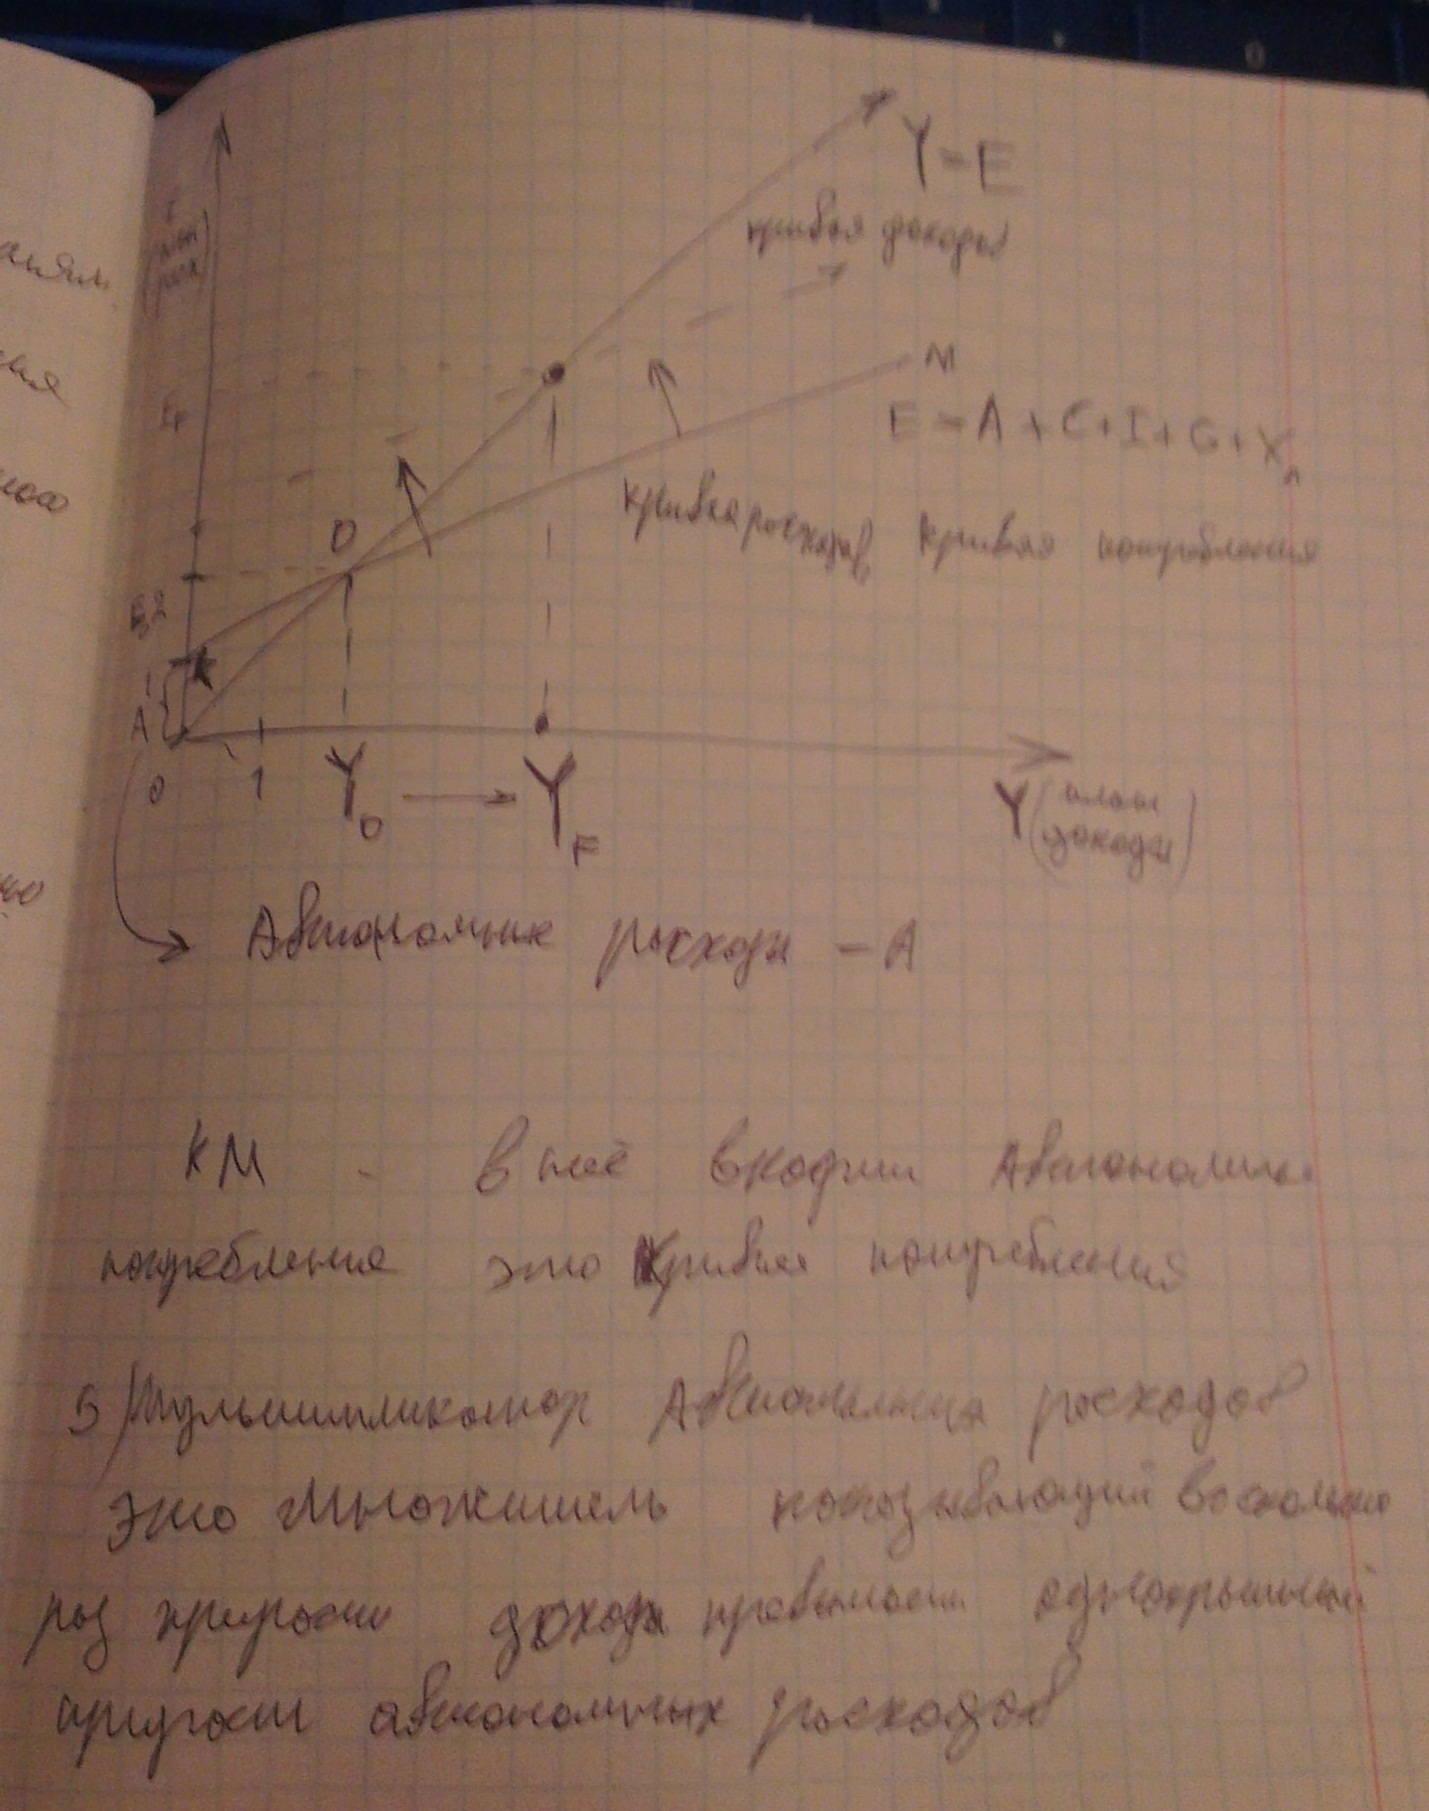 Y = E
кривая доходов
M
E = A + C + I + G + Xn
кривая расходов, кривая потребления
D
K
A
0
1
Y0 → YF
Y (план доходы)
Автономные расходы – A
KM - в неё входит Автономные
потребления это Кривая потребления
5) Мультипликатор Автономных расходов
это множитель показывающий во сколько
раз прирост дохода превышает однократный
прирост автономных расходов